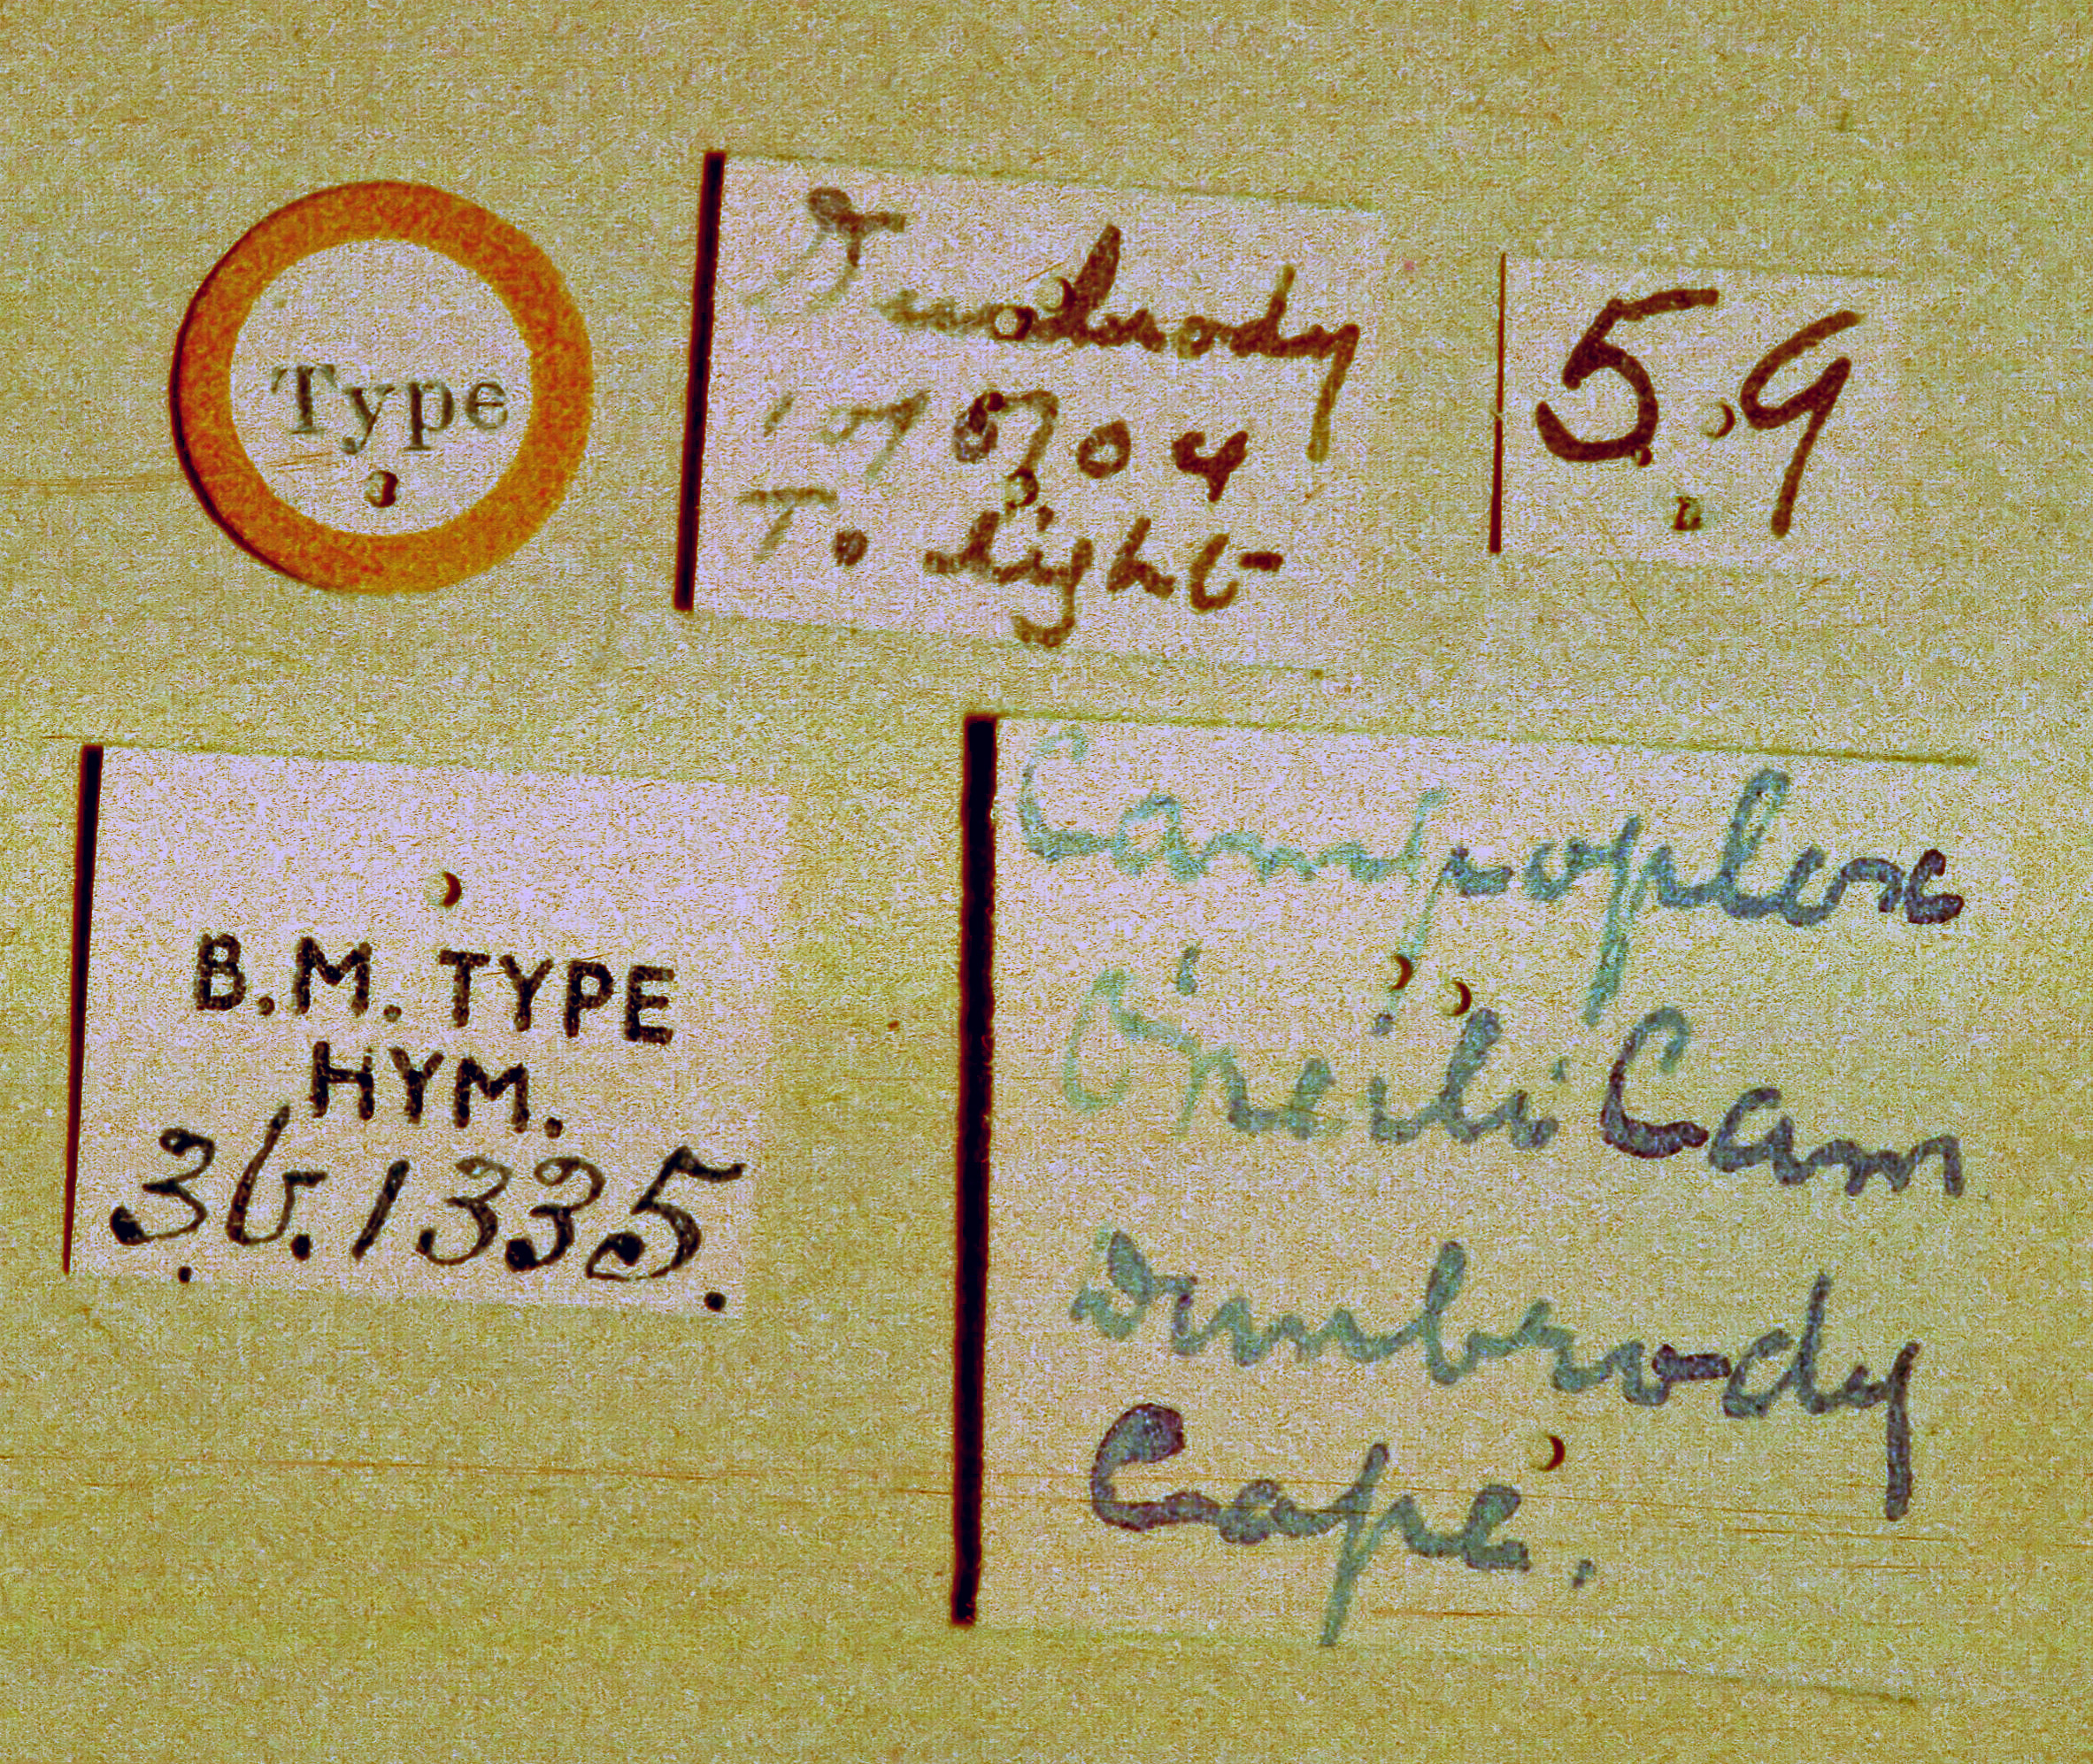 Type
Dunbrody
04
To light
59
B.M. TYPE
HYM.
3b.1335.
Campoplex
O'neili Cam
Dunbrody
Cape.